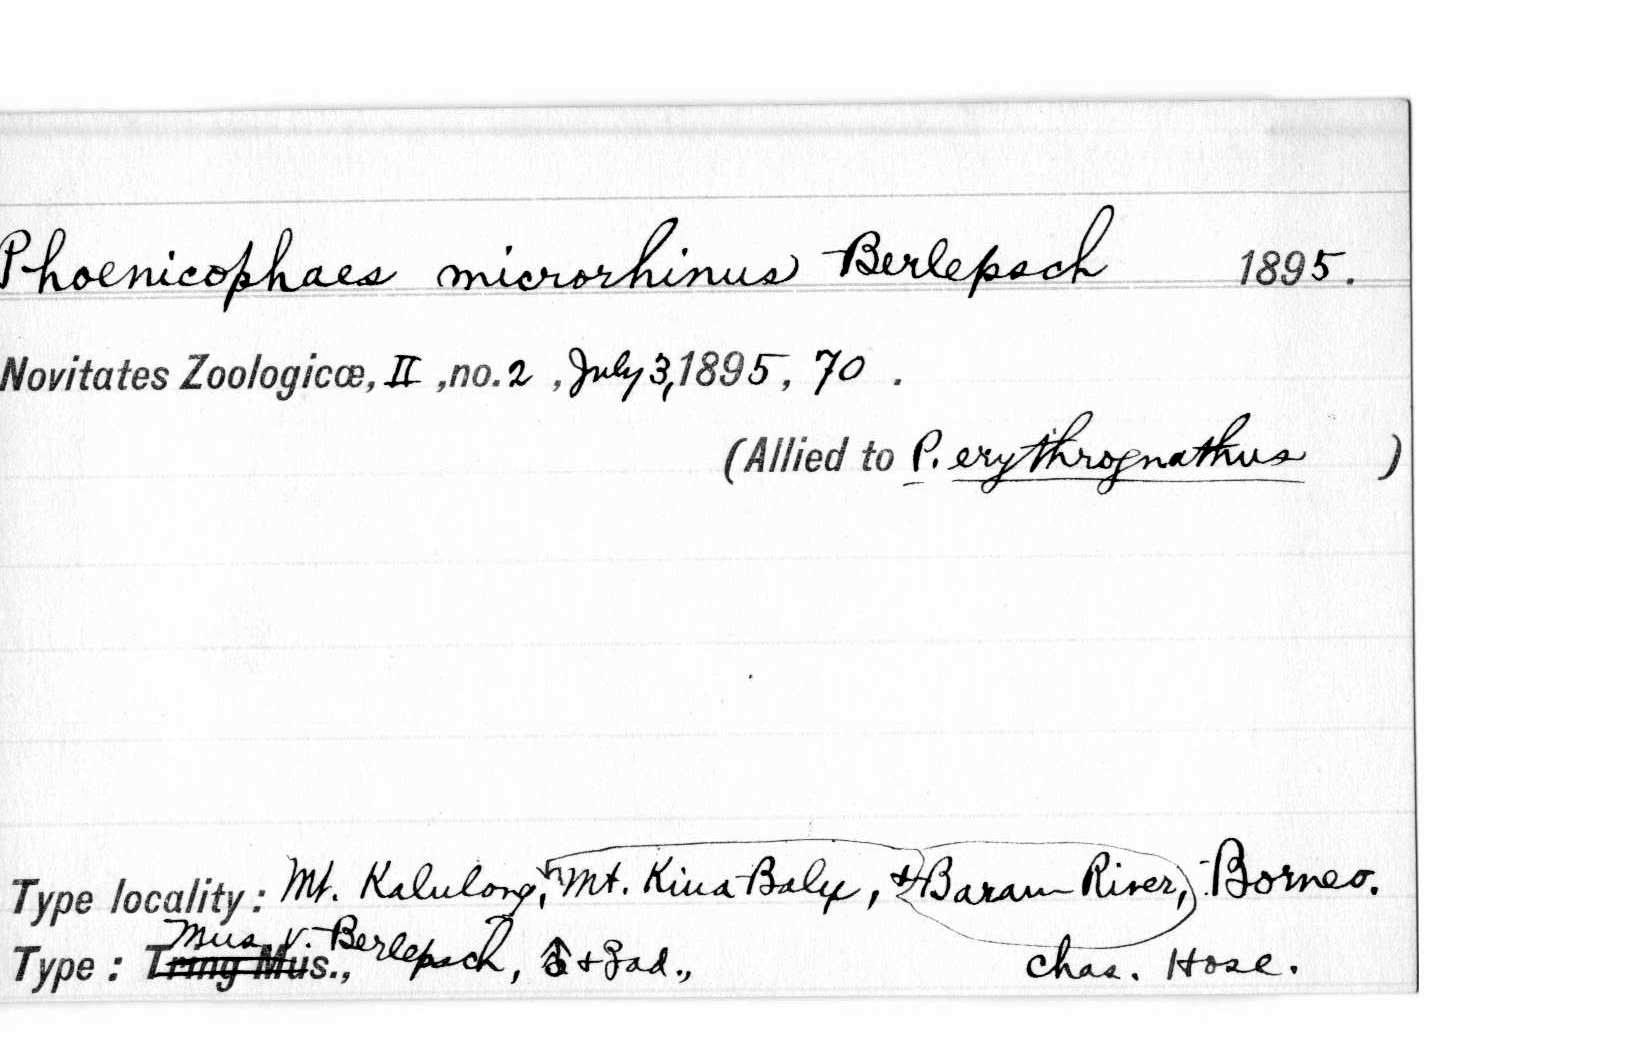 Phoenicophaes microrhinus Berlepsch 1895.
Novitates Zoologicæ, II, no. 2, July 3, 1895, 70.
(Allied to P. erythrognathus)
Type locality: Mt. Kalulong, Mt. Kina Balu, & Baram River, Borneo.
Mus. v. Berlepsch,
Type: Tring Mus., ♂ + ♀ ad., Chas. Hose.